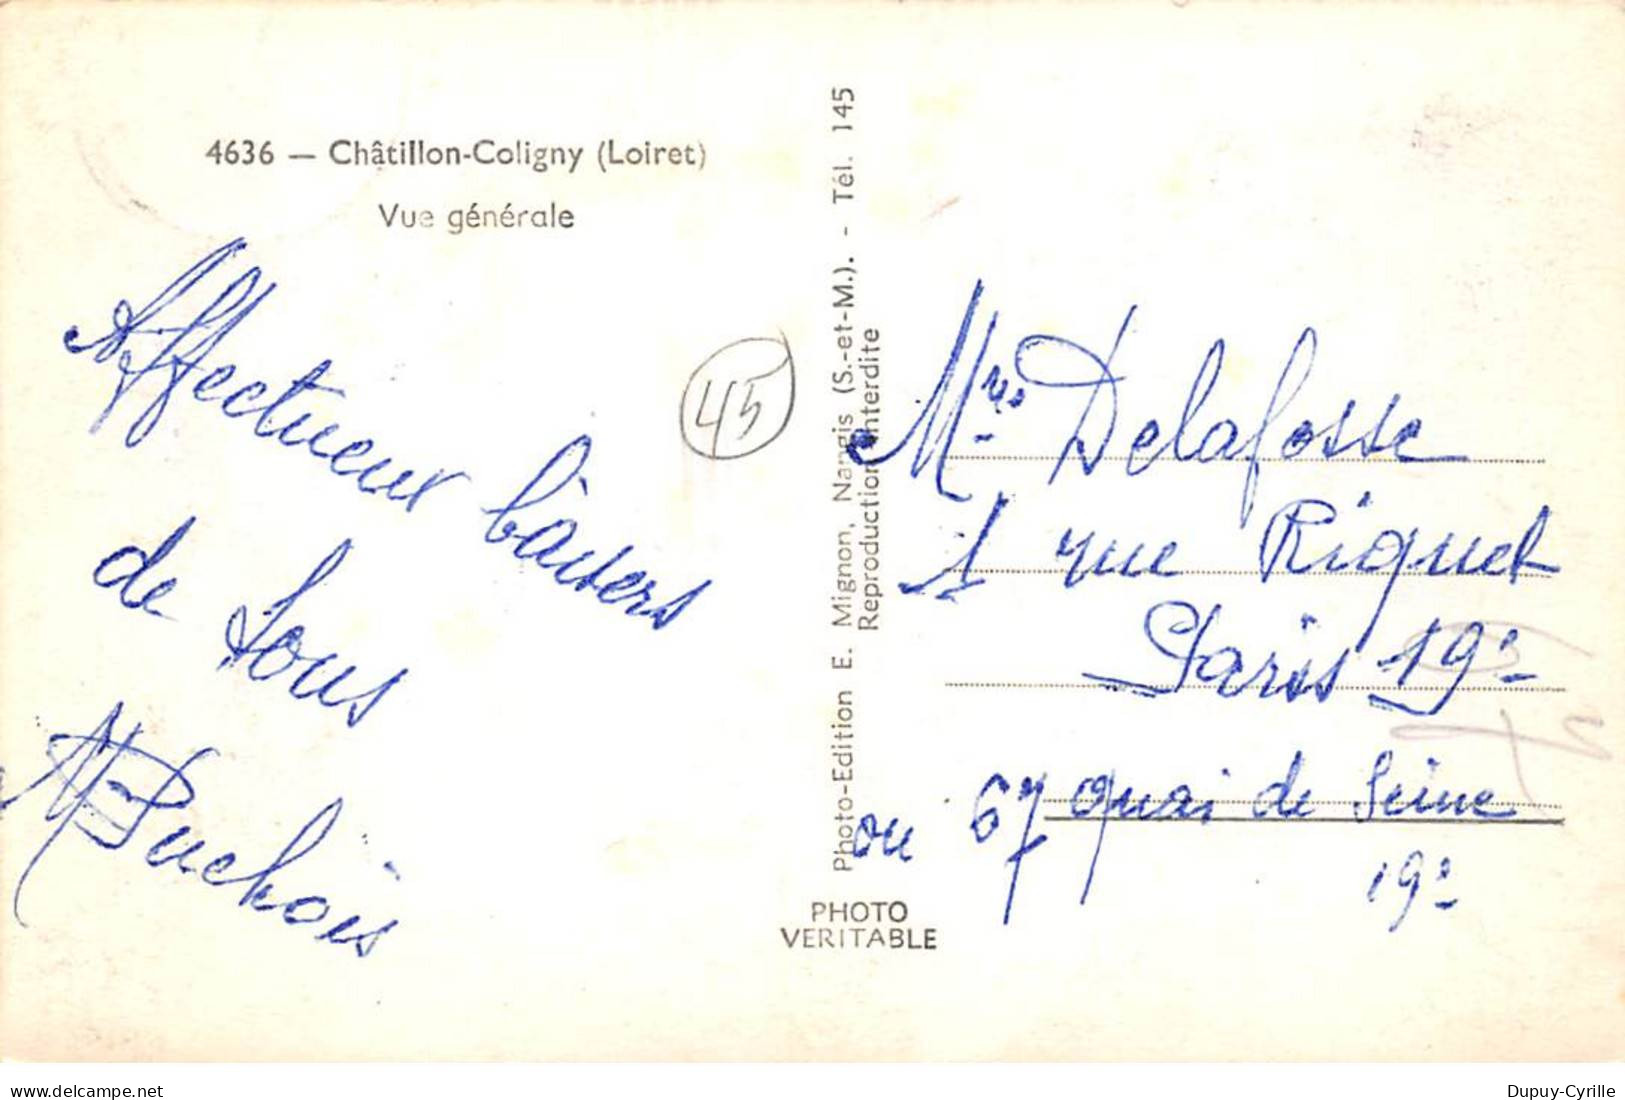 4636 — Châtillon-Coligny (Loiret)
Vue générale
Affectueux baisers
de tous
Puchois
45
Photo-Edition E. Mignon, Nangis (S.-et-M.). - Tél. 145
Reproduction interdite
PHOTO
VERITABLE
Mrs Delafosse
1 rue Riquet
Paris 19e
ou 67 quai de Seine
19e
delcampe.net
Dupuy-Cyrille